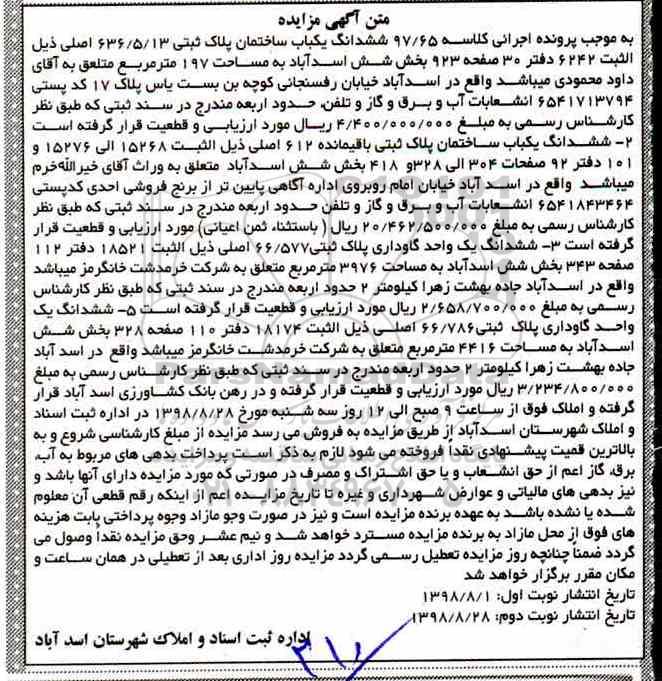 متن آگهی مزایده
به موجب پرونده اجرائی کلاسه ۹۷/۶۵ ششدانگ یکباب ساختمان پلاک ثبتی ۶۳۶/۵/۱۳ اصلی ذیل
الثبت ۶۲۴۲ دفتر ۳۰ صفحه ۹۲۳ بخش شش اسدآباد به مساحت ۱۹۷ مترمربع متلعق به آقای
داود محمودی میباشد واقع در اسدآباد خیابان رفسنجانی کوچه بن بست یاس پلاک ۱۷ کد پستی
۶۵۴۱۷۱۳۷۹۴ انشعابات آب و برق و گاز و تلفن، حدود اربعه مندرج در سند ثبتی که طبق نظر
کارشناس رسمی به مبلغ ۴/۴۰۰/۰۰۰/۰۰۰ ریال مورد ارزیابی و قطعیت قرار گرفته است
۲- ششدانگ یکباب ساختمان پلاک ثبتی باقیمانده ۶۱۲ اصلی ذیل الثبت ۱۵۲۶۸ الی ۱۵۲۷۶ و
۱۰۱ دفتر ۹۲ صفحات ۳۰۴ الی ۳۲۸و ۴۱۸ بخش شش اسدآباد متعلق به وراث آقای خیرالله‌خرم
میباشد واقع در اسدآباد خیابان امام روبروی اداره آگاهی پایین تر از برنج فروشی احدی کدپستی
۶۵۴۱۸۴۳۴۶۴ انشعابات آب و برق و گاز و تلفن حدود اربعه مندرج در سند ثبتی که طبق نظر
کارشناس رسمی به مبلغ ۲۰/۴۶۲/۵۰۰/۰۰۰ ریال( باستثناء ثمن اعیانی) مورد ارزیابی و قطعیت قرار
گرفته است ۳- ششدانگ یک واحد گاوداری پلاک ثبتی۶۶/۵۷۷ اصلی ذیل الثبت ۱۸۵۲۱ دفتر ۱۱۲
صفحه ۳۴۳ بخش شش اسدآباد به مساحت ۳۹۷۶ مترمربع متعلق به شرکت خرمدشت خانگرمز میباشد
واقع در اسدآباد جاده بهشت زهرا کیلومتر ۲ حدود اربعه مندرج در سند ثبتی که طبق نظر کارشناس
رسمی به مبلغ ۲/۶۵۸/۷۰۰/۰۰۰ ریال مورد ارزیابی و قطعیت قرار گرفته است ۵- ششدانگ یک
واحد گاوداری پلاک ثبتی۶۶/۷۸۶ اصلی ذیل الثبت ۱۸۱۷۴ دفتر ۱۱۰ صفحه ۳۲۸ بخش شش
اسدآباد به مساحت ۴۴۱۶ مترمربع متعلق به شرکت خرمدشت خانگرمز میباشد واقع در اسد آباد
جاده بهشت زهرا کیلومتر ۲ حدود اربعه مندرج در سند ثبتی که طبق نظر کارشناس رسمی به مبلغ
۳/۲۳۴/۸۰۰/۰۰۰ ریال مورد ارزیابی و قطعیت قرار گرفته و در رهن بانک کشاورزی اسد آباد قرار
گرفته و املاک فوق از ساعت ۹ صبح الی ۱۲ روز سه شنبه مورخ ۱۳۹۸/۸/۲۸ در اداره ثبت اسناد
و املاک شهرستان اسدآباد از طریق مزایده به فروش می رسد مزایده از مبلغ کارشناسی شروع و به
بالاترین قمیت پیشنهادی نقداً فروخته می شود لازم به ذکر است پرداخت بدهی های مربوط به آب،
برق، گاز اعم از حق انشعاب و یا حق اشتراک و مصرف در صورتی که مورد مزایده دارای آنها باشد و
نیز بدهی های مالیاتی و عوارض شهرداری و غیره تا تاریخ مزایده اعم از اینکه رقم قطعی آن معلوم
شده یا نشده باشد به عهده برنده مزایده است و نیز در صورت وجو مازاد وجوه پرداختی بابت هزینه
های فوق از محل مازاد به برنده مزایده مسترد خواهد شد و نیم عشر وحق مزایده نقدا وصول می
گردد ضمناً چنانچه روز مزایده تعطیل رسمی گردد مزایده روز اداری بعد از تعطیلی در همان ساعت و
مکان مقرر برگزار خواهد شد
تاریخ انتشار نوبت اول: ۱۳۹۸/۸/۱
تاریخ انتشار نوبت دوم: ۱۳۹۸/۸/۲۸
اداره ثبت اسناد و املاک شهرستان اسد آباد